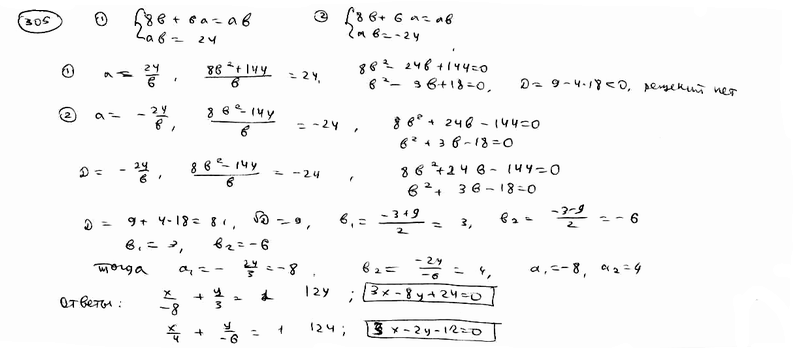 305 1) { 8в + 6a = aв 2) { 8в + 6a = aв
aв = 24 aв = -24
1) a = 24/в, (8в² + 144)/в = 24, 8в² - 24в + 144 = 0
в² - 3в + 18 = 0, D = 9 - 4·18 < 0, решений нет
2) a = -24/в, (8в² - 144)/в = -24, 8в² + 24в - 144 = 0
в² + 3в - 18 = 0
D = -24/в, (8в² - 144)/в = -24, 8в² + 24в - 144 = 0
в² + 3в - 18 = 0
D = 9 + 4·18 = 81, √D = 9, в₁ = (-3+9)/2 = 3, в₂ = (-3-9)/2 = -6
в₁ = 3, в₂ = -6
тогда a₁ = -24/3 = -8, в₂ = -24/-6 = 4, a₁ = -8, a₂ = 4
Ответы: x/-8 + y/3 = 1 124; 3x - 8y + 24 = 0
x/4 + y/-6 = 1 124; 3x - 2y - 12 = 0